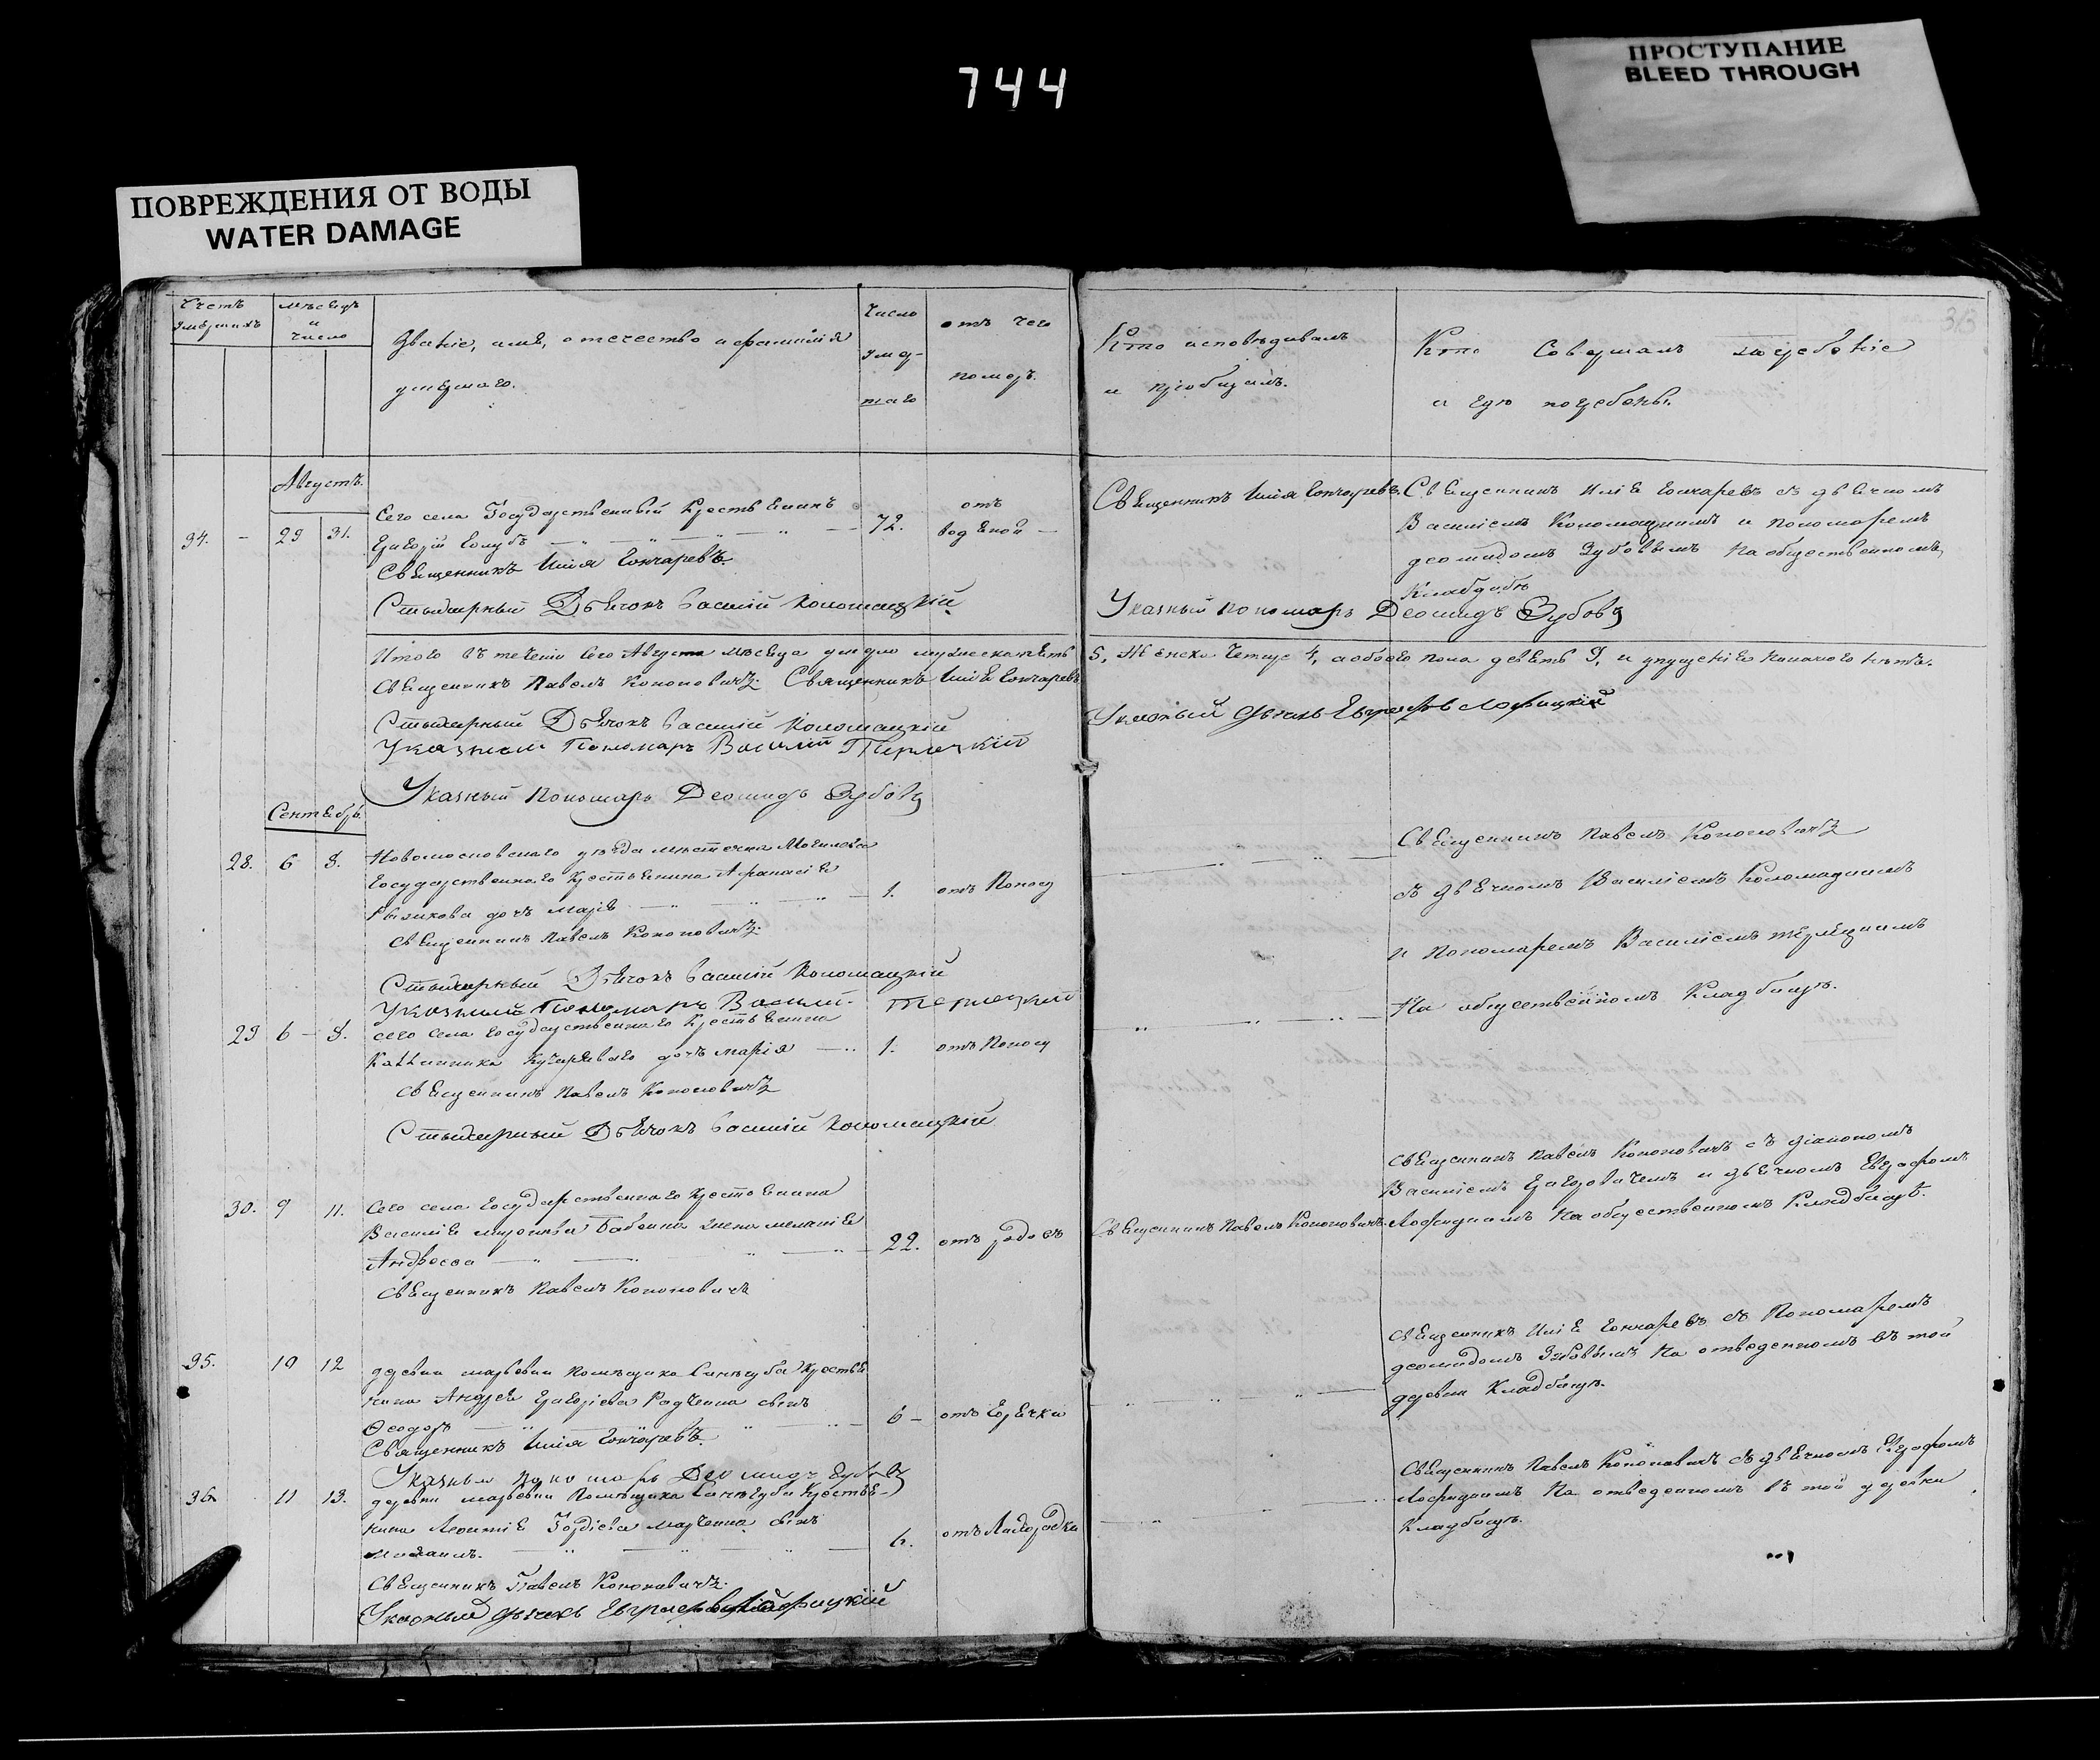 744
ПРОСТУПАНИЕ
BLEED THROUGH
ПОВРЕЖДЕНИЯ ОТ ВОДЫ
WATER DAMAGE
313
Счетъ
умершихъ
мѣсяцъ
и
число
Званіе, имя, отечество и фамилія
умершаго.
Число
умер-
шаго
отъ чего
померъ.
Кто исповѣдывалъ
и пріобщалъ.
Кто Совершалъ погребеніе
и гдѣ погребены.
Августъ.
34. - 29 31.
Сего села Государственный Крестьянинъ
Григорій Голубъ
72.
отъ
водяной
Священникъ Илія Гончаревъ.
Стихарный Дьячокъ Василій Коломацкій
Священникъ Илія Гончаревъ.
Священникъ Илія Гончаревъ съ дьячкомъ
Василіемъ Коломацкимъ и пономаремъ
Деомидомъ Зубовымъ на общественномъ
Кладбищѣ
Указный пономарь Деомидъ Зубовъ
Итого въ теченіи сего Августа мѣсяца умерло мужеска пять 5, Женска Четыре 4, а обоего пола девять 9, и упущенія никакого нѣтъ.
Священникъ Павелъ Кононовичъ. Священникъ Илія Гончаревъ
Стихарный Дьячокъ Василій Коломацкій
Указный Дьячокъ Евграфъ
Указный Пономарь Василій Терлецкій
Указный Пономарь Деомидъ Зубовъ
Сентябрь.
28. 6 8.
Новомосковского уѣзда мѣстечка Могилева
Государственнаго Крестьянина Афанасія
дочь Марія
1.
отъ Поносу
Священникъ Павелъ Кононовичъ.
Стихарный Дьячокъ Василій Коломацкій
Указный Пономарь Василій Терлецкій
Священникъ Павелъ Кононовичъ
съ дьячкомъ Василіемъ Коломацкимъ
и Пономаремъ Василіемъ Терлецкимъ
На общественномъ Кладбищѣ.
29 6 - 8.
сего села Государственнаго Крестьянина
дочь Марія
1.
отъ Поносу
Священникъ Павелъ Кононовичъ
Стихарный Дьячокъ Василій Коломацкій
30. 9 11.
Сего села Государственнаго Крестьянина
Василія Бабенка жена Меланія
Андреева
22.
отъ родовъ
Священникъ Павелъ Кононовичъ
Священникъ Павелъ Кононовичъ.
Священникъ Павелъ Кононовичъ съ діакономъ
Василіемъ Григоровичемъ и дьячкомъ Евграфомъ
на общественномъ Кладбищѣ.
35. 10 12
деревни Марьевки Помѣщика Синегуба Крестья
нина Андрея Григоріева Радченка сынъ
Ѳеодоръ
6 -
отъ Горячки
Священникъ Илія Гончаревъ.
Указный Пономарь Деомидъ Зубовъ
Священникъ Илія Гончаревъ съ Пономаремъ
Деомидомъ Зубовымъ на отведенномъ въ той
деревни Кладбищѣ.
36. 11 13.
деревни Марьевки Помѣщика Синегуба Крестья-
нина Леонтія Гордіева Марченка сынъ
Михаилъ.
6.
отъ Лихорадки
Священникъ Павелъ Кононовичъ.
Указный Дьячокъ Евграфъ
Священникъ Павелъ Кононовичъ съ дьячкомъ Евграфомъ
на отведенномъ въ той деревни
Кладбищѣ.